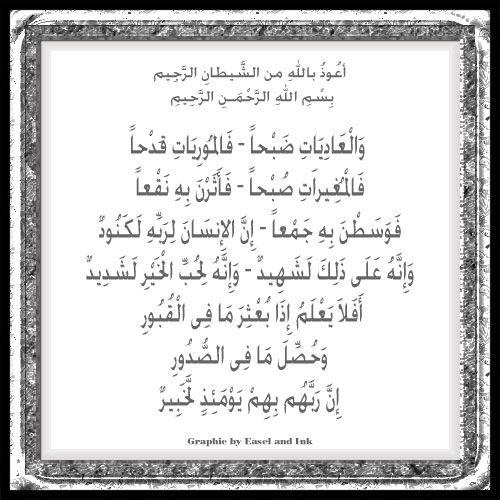 أعُوذُ باللهِ من الشَّيطانِ الرَّجِيم
بِسْمِ اللهِ الرَّحْمَـنِ الرَّحِيمِ
وَالْعَادِيَاتِ ضَبْحاً - فَالمُورِيَاتِ قدْحاً
فَالْمُغِيرَاتِ صُبْحاً - فَأَثَرْنَ بِهِ نَقْعاً
فَوَسَطْنَ بِهِ جَمْعاً - إِنَّ الإِنسَانَ لِرَبِّهِ لَكَنُودٌ
وَإِنَّهُ عَلَى ذَلِكَ لَشَهِيدٌ - وَإِنَّهُ لِحُبِّ الْخَيْرِ لَشَدِيدٌ
أَفَلاَ يَعْلَمُ إِذَا بُعْثِرَ مَا فِى الْقُبُورِ
وَحُصِّلَ مَا فِى الصُّدُورِ
إِنَّ رَبَّهُم بِهِمْ يَوْمَئِذٍ لَّخَبِيرٌ
Graphic by Easel and Ink